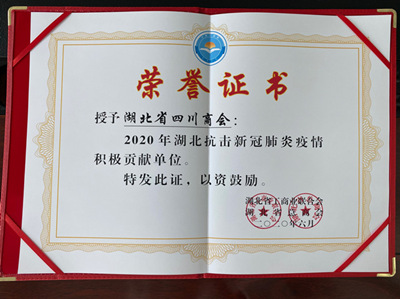 荣誉证书
授予湖北省四川商会：
2020年湖北抗击新冠肺炎疫情
积极贡献单位。
特发此证，以资鼓励。
湖北省工商业联合会
湖北省总商会
二〇二〇年六月